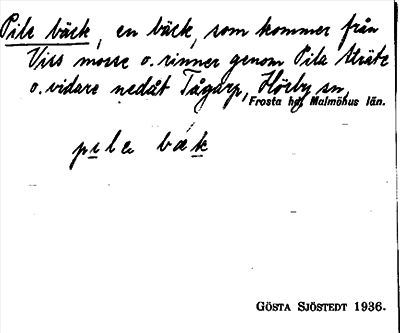 Pile bäck, en bäck, som kommer från
Viss mosse o. rinner genom Pila sträte
o. vidare nedåt Tågarp, Hörby sn,
Frosta hd, Malmöhus län.
pile bæk
GÖSTA SJÖSTEDT 1936.